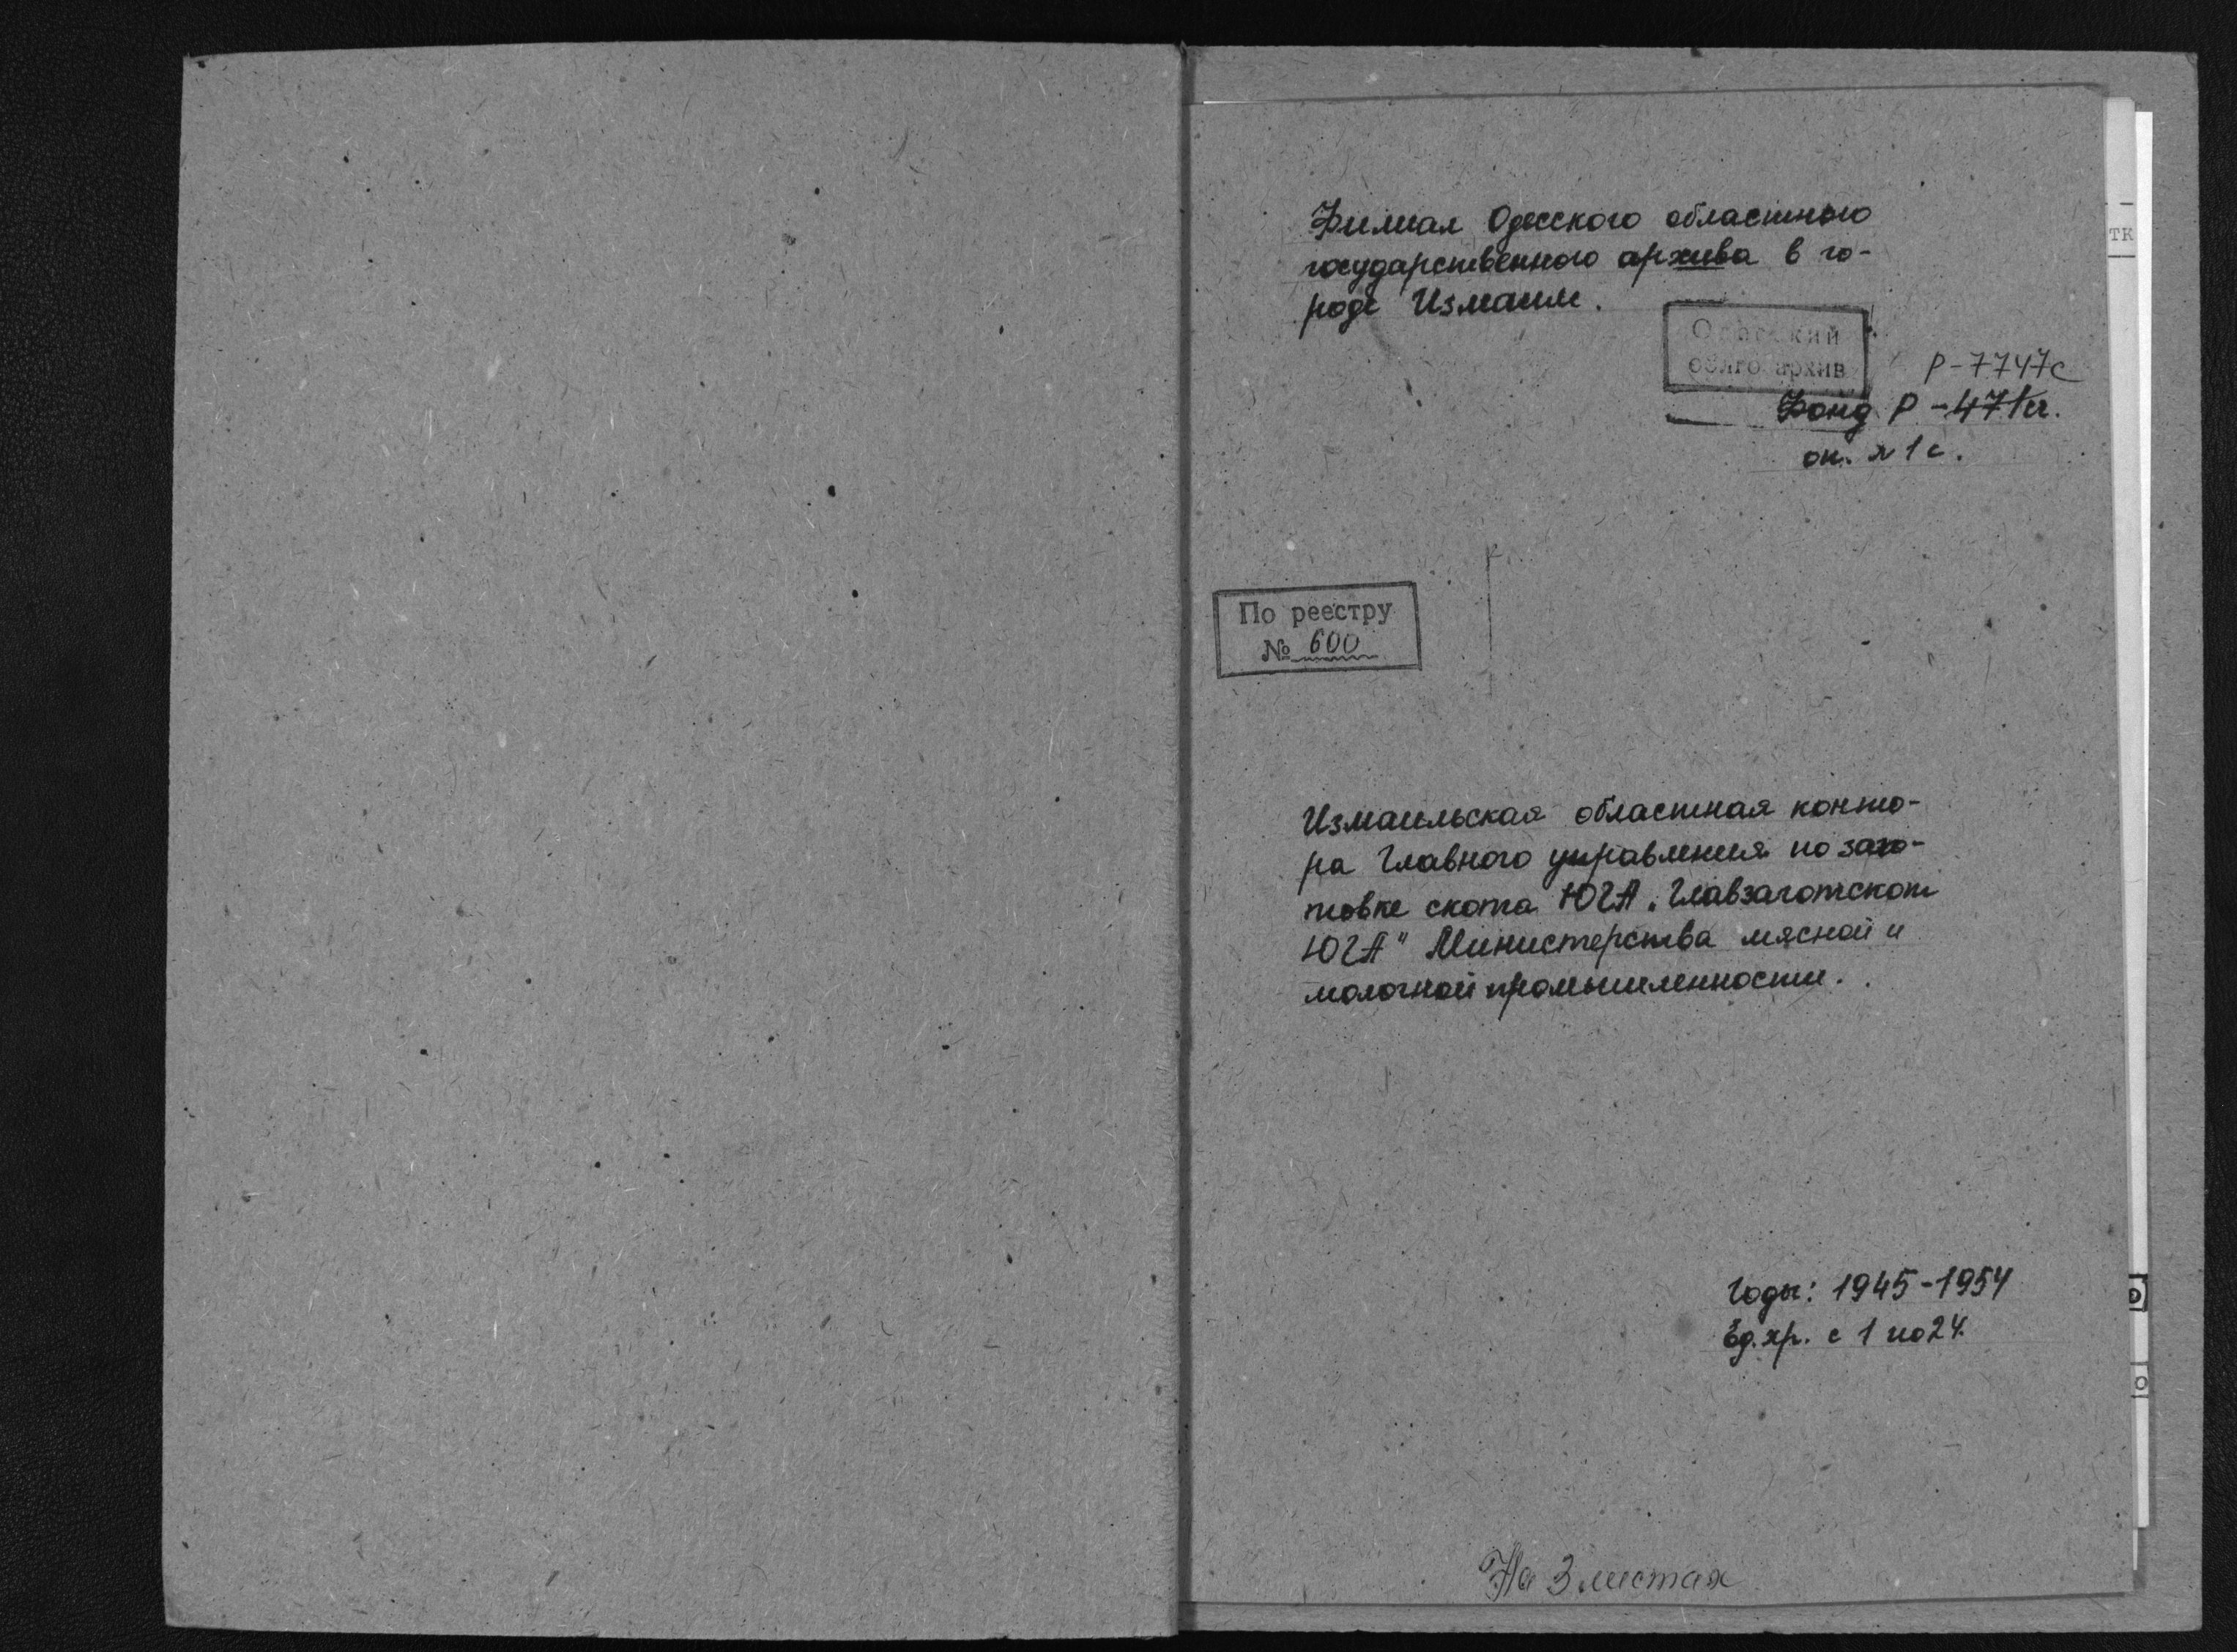 Филиал Одесского областного
государственного архива в го-
роде Измаиле.
Одесский
облгосархив
Р-7747с
Фонд Р-471с.
оп. № 1 с.
По реестру
№ 600
Измаильская областная конто-
ра Главного управления по заго-
товке скота ЮГА „Главзаготскот
ЮГА" Министерства мясной и
молочной промышленности.
Годы: 1945-1954
Ед. хр. с 1 по 24.
На 3 листах
тк